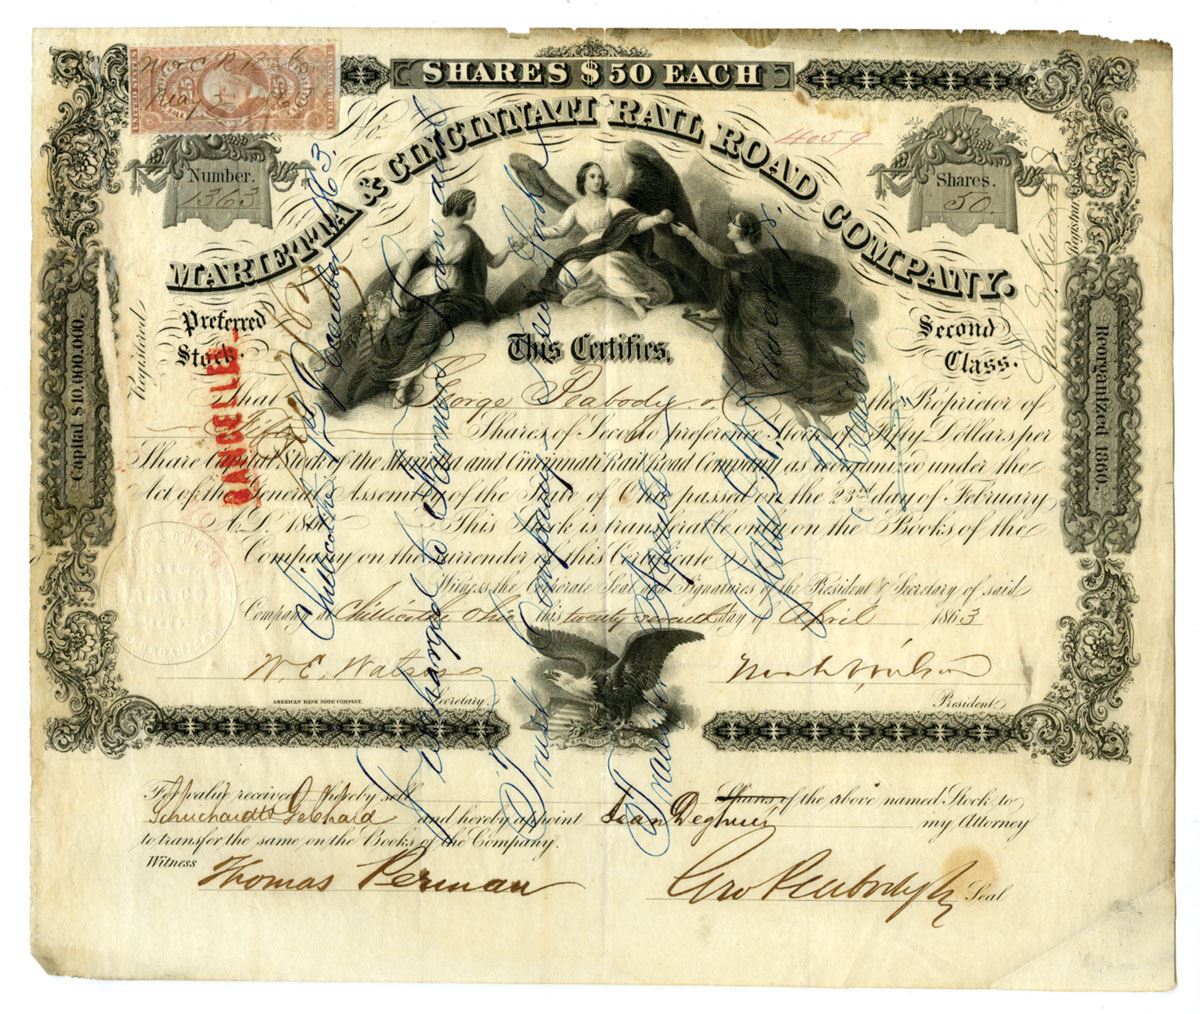 SHARES $50 EACH
MARIETTA & CINCINNATI RAIL ROAD COMPANY.
No. 4059
Number.
1363
Shares.
50.
Registered
Preferred
Stock.
Second
Class.
Capital $10,000,000.
Reorganized 1860.
CANCELLED
This Certifies,
That George Peabody & Co. the Proprietor of
Fifty Shares of Second preference Stock of Fifty Dollars per
Share Capital Stock of the Marietta and Cincinnati Rail Road Company as reorganized under the
Act of the General Assembly of the State of Ohio passed on the 23rd day of February
A.D. 186 This Stock is transferable only on the Books of the
Company on the surrender of this Certificate
Witness the Corporate Seal and Signatures of the President & Secretary of said
Company at Chillicothe Ohio this twenty seventh day of April 1863
W. E. Watson
Secretary.
Noah L. Wilson
President.
AMERICAN BANK NOTE COMPANY.
For value received I hereby sell Shares of the above named Stock to
Schuchardt & Gebhard and hereby appoint my Attorney
to transfer the same on the Books of the Company.
Witness
Thomas Perman
Geo Peabody & Co
Seal
Chillicothe December 1863.
Exchanged to Farmers Loan and
Trust Company New York
Trustees